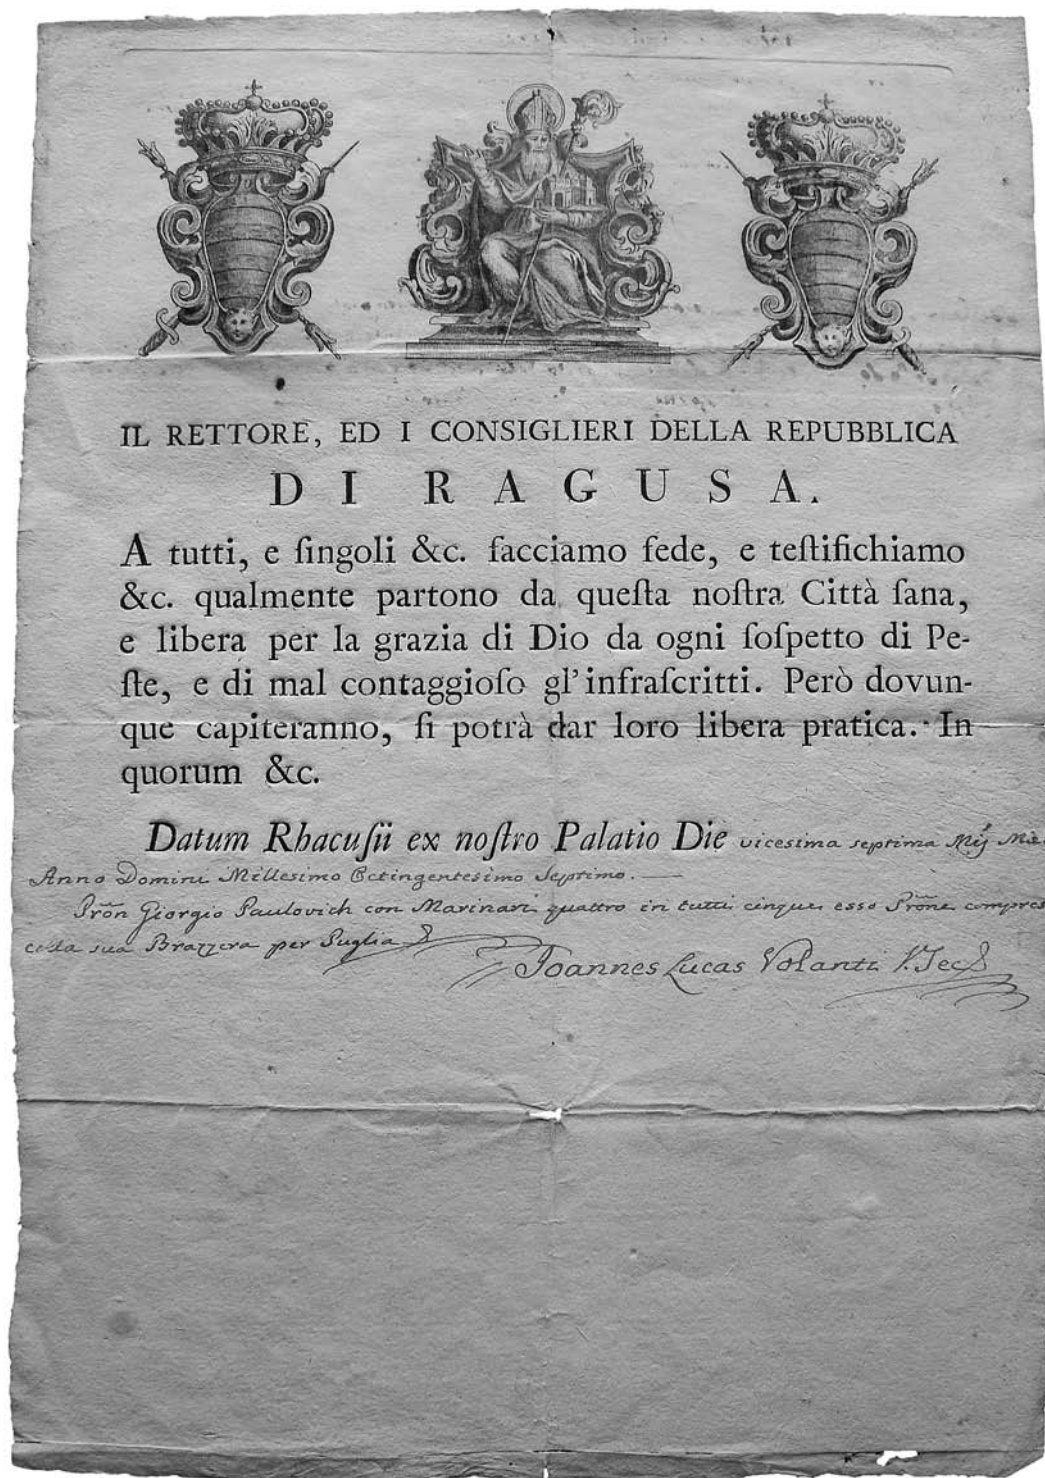 IL RETTORE, ED I CONSIGLIERI DELLA REPUBBLICA
DI RAGUSA.
A tutti, e ſingoli &c. facciamo fede, e teſtifichiamo
&c. qualmente partono da queſta noſtra Città ſana,
e libera per la grazia di Dio da ogni ſoſpetto di Pe-
ſte, e di mal contaggioſo gl'infraſcritti. Però dovun-
que capiteranno, ſi potrà dar loro libera pratica. In
quorum &c.
Datum Rhacuſii ex noſtro Palatio Die vicesima septima
Anno Domini Millesimo Octingentesimo Septimo.
Prõn Giorgio Paulovich con Marinari quattro in tutti cinque esso Prõne compres
colla sua Brazzera per Puglia
Joannes Lucas Volanti